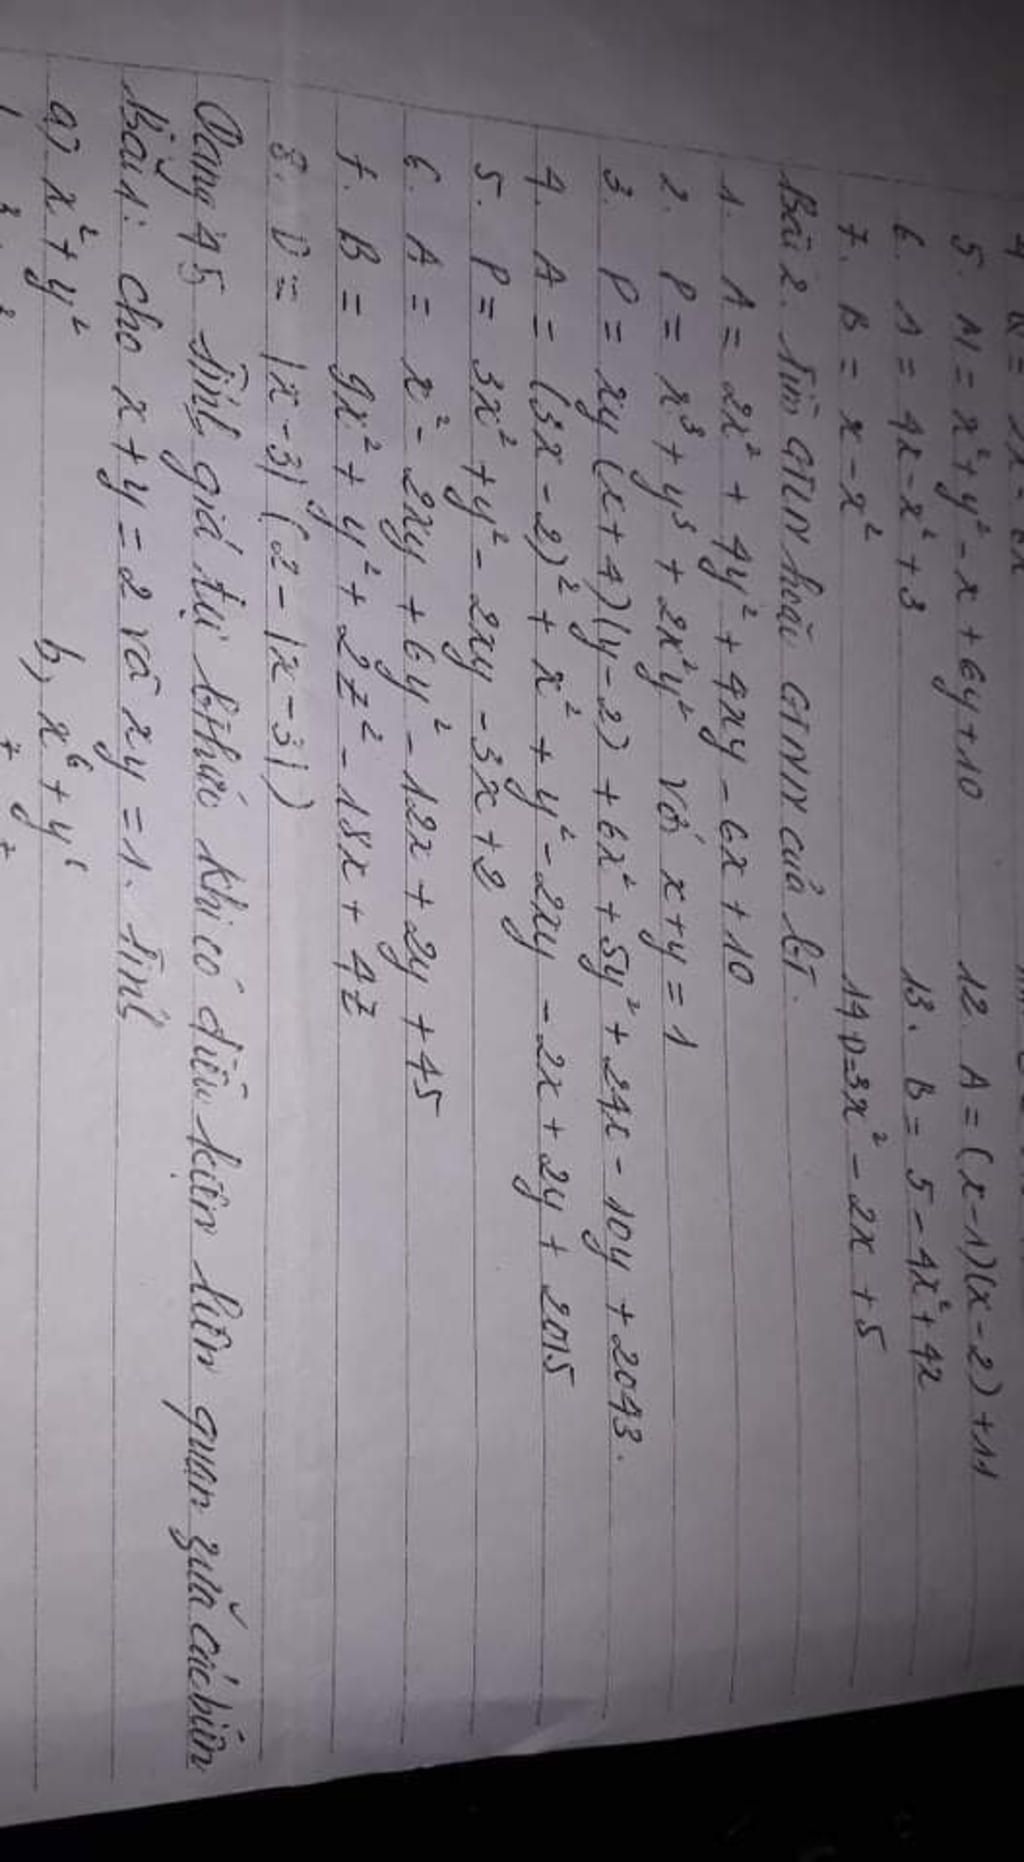 5. M = x² + y² - x + 6y + 10
12. A = (x-1)(x-2) + 11
6. A = 4x - x² + 3
13. B = 5 - 4x² + 4x
7. B = x - x²
14 D = 3x² - 2x + 5
Bài 2. Tìm GTLN hoặc GTNN của bt.
1. A = 2x² + 4y² + 4xy - 6x + 10
2. P = x³ + y³ + 2x²y² với x + y = 1
3. P = xy(x+4)(y-2) + 6x² + 5y² + 24x - 10y + 2043.
4. A = (3x-2)² + x² + y² - 2xy - 2x + 2y + 2015
5. P = 3x² + y² - 2xy - 3x + 2
6. A = x² - 2xy + 6y² - 12x + 2y + 45
7. B = 9x² + y² + 2z² - 18x + 4z
8. D = |x-3|(2-|x-3|)
Dạng 45 Tính giá trị bthức khi có điều kiện liên quan giữa các biến
Bài 1: cho x + y = 2 và xy = 1. Tính
a) x² + y²
b, x⁶ + y⁶